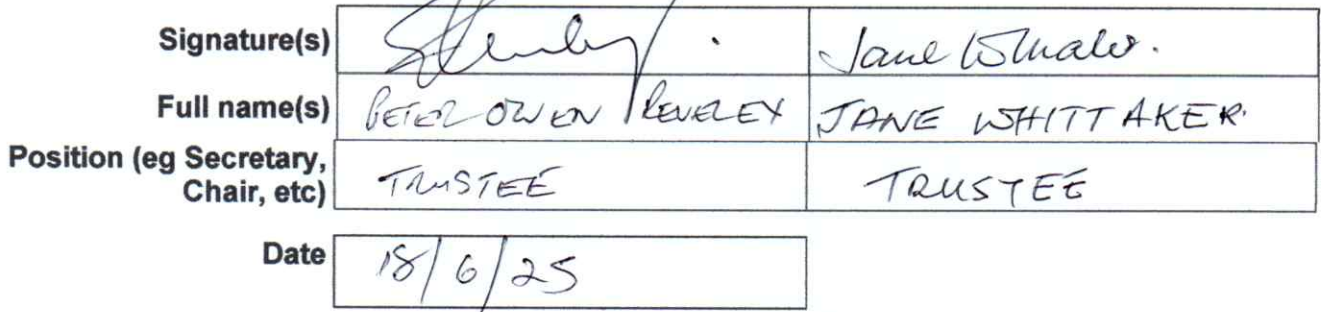 Signature(s) Jane Whale.
Full name(s) PETER OWEN REVELEY JANE WHITTAKER.
Position (eg Secretary,
Chair, etc) TRUSTEE TRUSTEE
Date 18/6/25